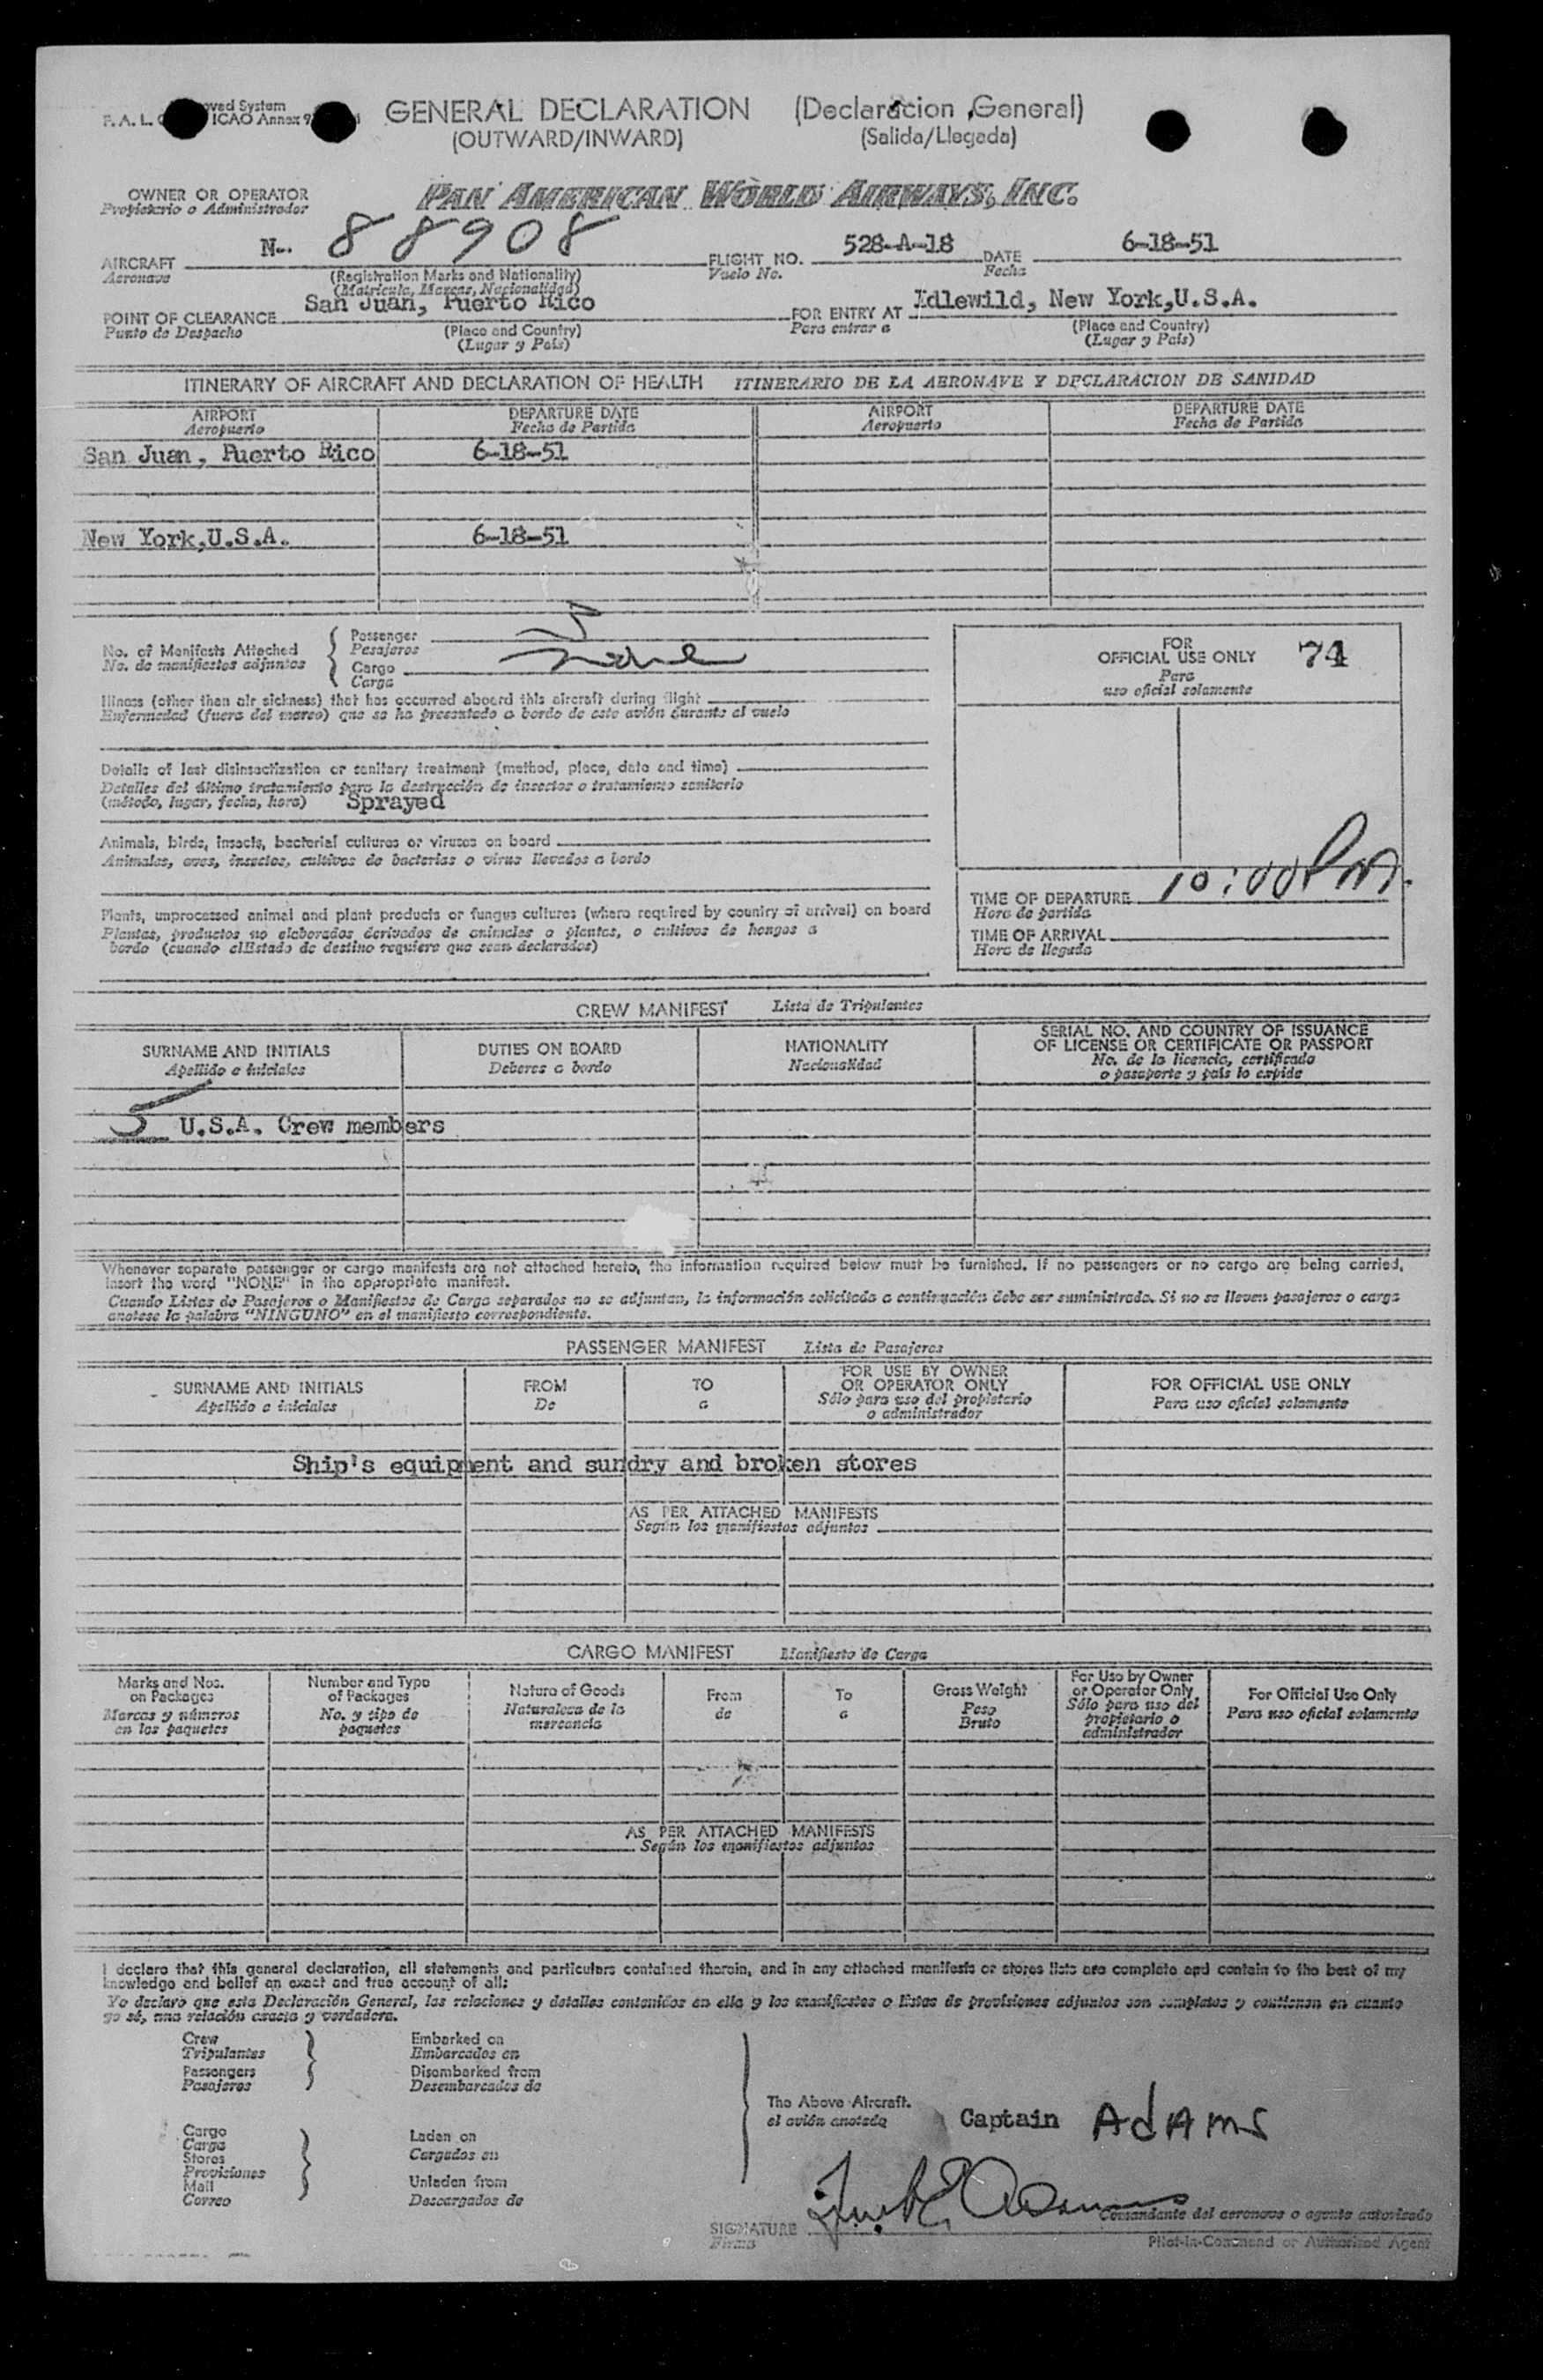 GENERAL DECLARATION (Declaracion General)
(OUTWARD/INWARD) (Salida/Llegada)
OWNER OR OPERATOR PAN AMERICAN WORLD AIRWAYS, INC.
Propietario o Administrador
AIRCRAFT N-. 88908 FLIGHT NO. 528-A-18 DATE 6-18-51
Aeronave (Registration Marks and Nationality) Vuelo No. Fecha
(Matricula, Marcas, Nacionalidad)
POINT OF CLEARANCE San Juan, Puerto Rico FOR ENTRY AT Idlewild, New York,U.S.A.
Punto de Despacho (Place and Country) Para entrar a (Place and Country)
(Lugar y País) (Lugar y País)
ITINERARY OF AIRCRAFT AND DECLARATION OF HEALTH ITINERARIO DE LA AERONAVE Y DECLARACION DE SANIDAD
AIRPORT DEPARTURE DATE AIRPORT DEPARTURE DATE
Aeropuerto Fecha de Partida Aeropuerto Fecha de Partida
San Juan, Puerto Rico 6-18-51
New York,U.S.A. 6-18-51
No. of Manifests Attached Passenger 5
No. de manifiestos adjuntos Pasajeros
Cargo None
Carga
FOR
OFFICIAL USE ONLY 74
Para
uso oficial solamente
Illness (other than air sickness) that has occurred aboard this aircraft during flight
Enfermedad (fuera del mareo) que se ha presentado a bordo de este avión durante el vuelo
Details of last disinsectization or sanitary treatment (method, place, date and time)
Detalles del último tratamiento para la destrucción de insectos o tratamiento sanitario
(método, lugar, fecha, hora) Sprayed
Animals, birds, insects, bacterial cultures or viruses on board
Animales, aves, insectos, cultivos de bacterias o virus llevados a bordo
Plants, unprocessed animal and plant products or fungus cultures (where required by country of arrival) on board
Plantas, productos no elaborados derivados de animales o plantas, o cultivos de hongos a
bordo (cuando elEstado de destino requiere que sean declarados)
TIME OF DEPARTURE 10:00 PM.
Hora de partida
TIME OF ARRIVAL
Hora de llegada
CREW MANIFEST Lista de Tripulantes
SURNAME AND INITIALS DUTIES ON BOARD NATIONALITY SERIAL NO. AND COUNTRY OF ISSUANCE
Apellido e iniciales Deberes a bordo Nacionalidad OF LICENSE OR CERTIFICATE OR PASSPORT
No. de la licencia, certificado
o pasaporte y país lo expide
5 U.S.A. Crew members
Whenever separate passenger or cargo manifests are not attached hereto, the information required below must be furnished. If no passengers or no cargo are being carried,
insert the word "NONE" in the appropriate manifest.
Cuando Listas de Pasajeros o Manifiestos de Carga separados no se adjuntan, la información solicitada a continuación debe ser suministrada. Si no se lleven pasajeros o carga
anotese la palabra "NINGUNO" en el manifiesto correspondiente.
PASSENGER MANIFEST Lista de Pasajeros
SURNAME AND INITIALS FROM TO FOR USE BY OWNER FOR OFFICIAL USE ONLY
Apellido e iniciales De a OR OPERATOR ONLY Para uso oficial solamente
Sólo para uso del propietario
o administrador
Ship's equipment and sundry and broken stores
AS PER ATTACHED MANIFESTS
Según los manifiestos adjuntos
CARGO MANIFEST Manifiesto de Carga
Marks and Nos. Number and Type Nature of Goods From To Gross Weight For Use by Owner For Official Use Only
on Packages of Packages Naturaleza de la de a Peso or Operator Only Para uso oficial solamente
Marcas y números No. y tipo de mercancia Bruto Sólo para uso del
en los paquetes paquetes propietario o
administrador
AS PER ATTACHED MANIFESTS
Según los manifiestos adjuntos
I declare that this general declaration, all statements and particulars contained therein, and in any attached manifests or stores lists are complete and contain to the best of my
knowledge and belief an exact and true account of all:
Yo declaro que esta Declaración General, las relaciones y detalles contenidos en ella y los manifiestos o listas de provisiones adjuntos son completos y contienen en cuanto
yo sé, una relación exacta y verdadera.
Crew Embarked on
Tripulantes Embarcados en
Passengers Disembarked from
Pasajeros Desembarcados de
The Above Aircraft.
el avión anotado Captain AdAms
Cargo Laden on
Carga Cargados en
Stores
Provisiones
Mail Unladen from
Correo Descargados de
SIGNATURE Comandante del aeronave o agente autorizado
Firma Pilot-in-Command or Authorized Agent